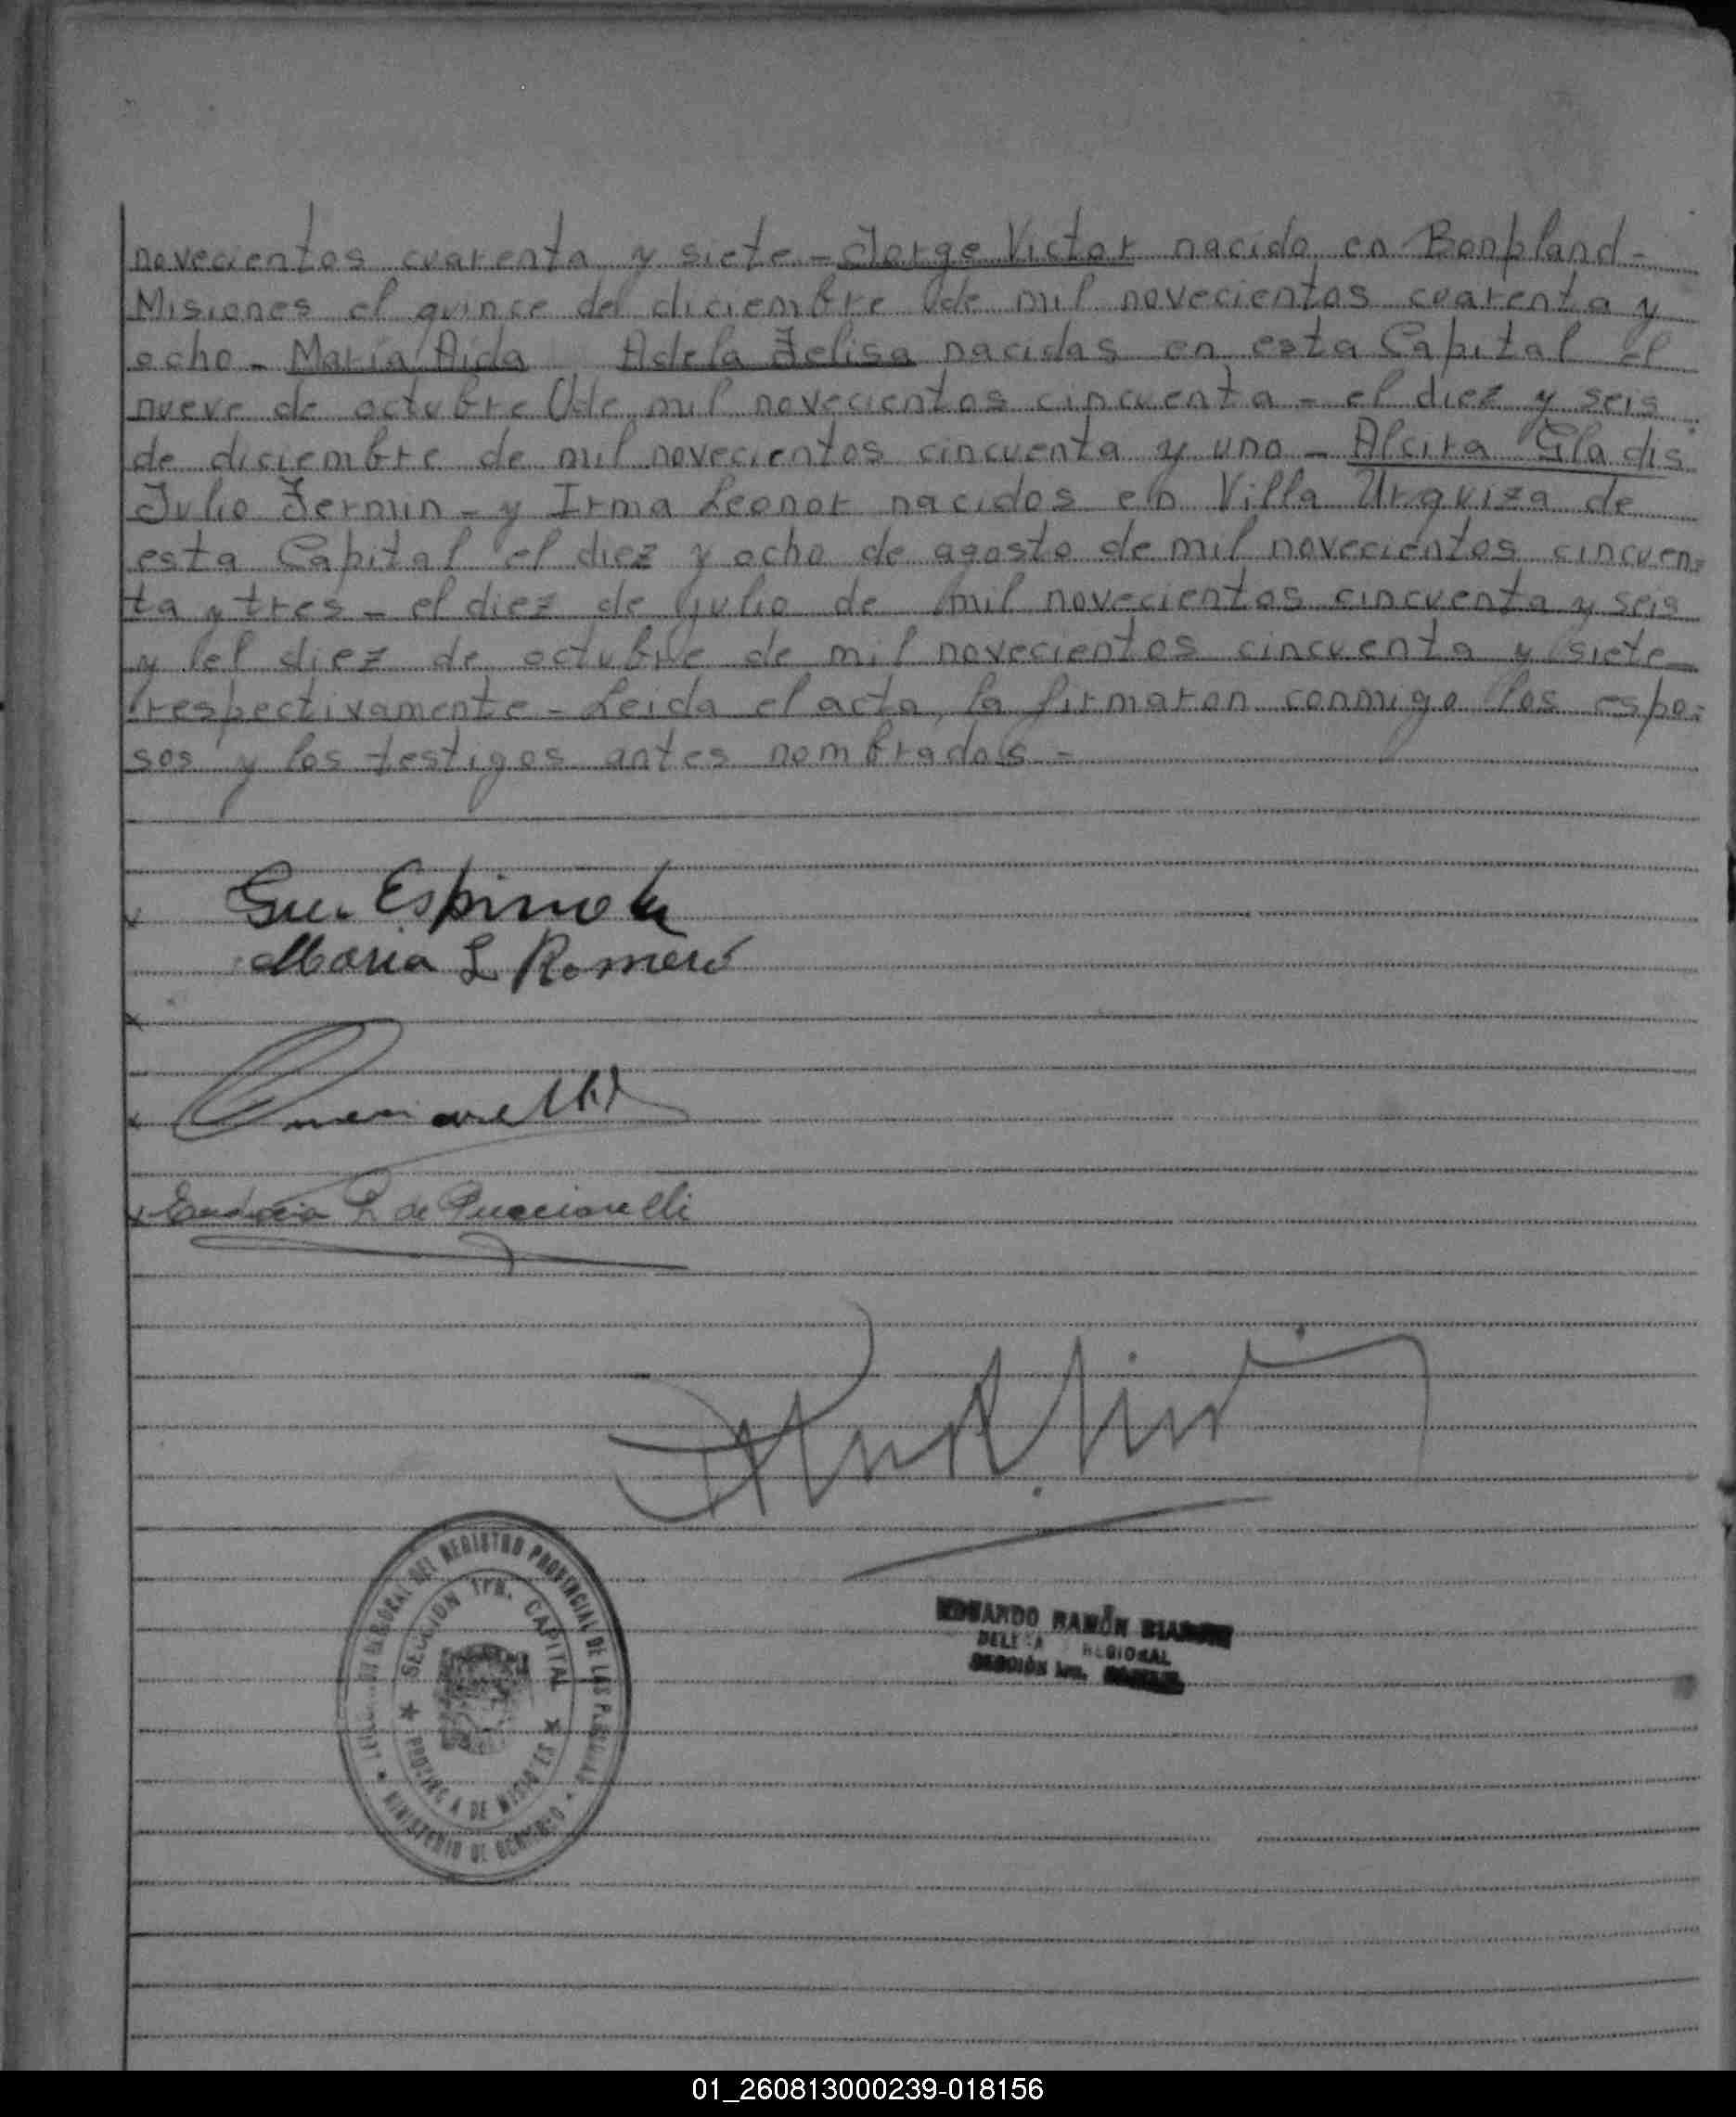 novecientos cuarenta y siete - Jorge Victor nacido en Bonpland -
Misiones el quince de diciembre de mil novecientos cuarenta y
ocho - Maria Aida Adela Felisa nacidas en esta Capital el
nueve de octubre de mil novecientos cincuenta - el diez y seis
de diciembre de mil novecientos cincuenta y uno - Alcira Gladis
Julio Fermin - y Irma Leonor nacidos en Villa Urquiza de
esta Capital el diez y ocho de agosto de mil novecientos cincuen=
ta y tres - el diez de julio de mil novecientos cincuenta y seis
y el diez de octubre de mil novecientos cincuenta y siete
respectivamente - Leida el acta, la firmaron conmigo los espo=
sos y los testigos antes nombrados =
Espinola
Maria L Romero
de Pucciarelli
REGISTRO PROVINCIAL DE LAS PERSONAS
SECCION 1ra. CAPITAL
PROVINCIA DE MISIONES
MINISTERIO DE GOBIERNO
EDUARDO RAMÓN
REGIONAL
SECCIÓN 1ra.
01_260813000239-018156